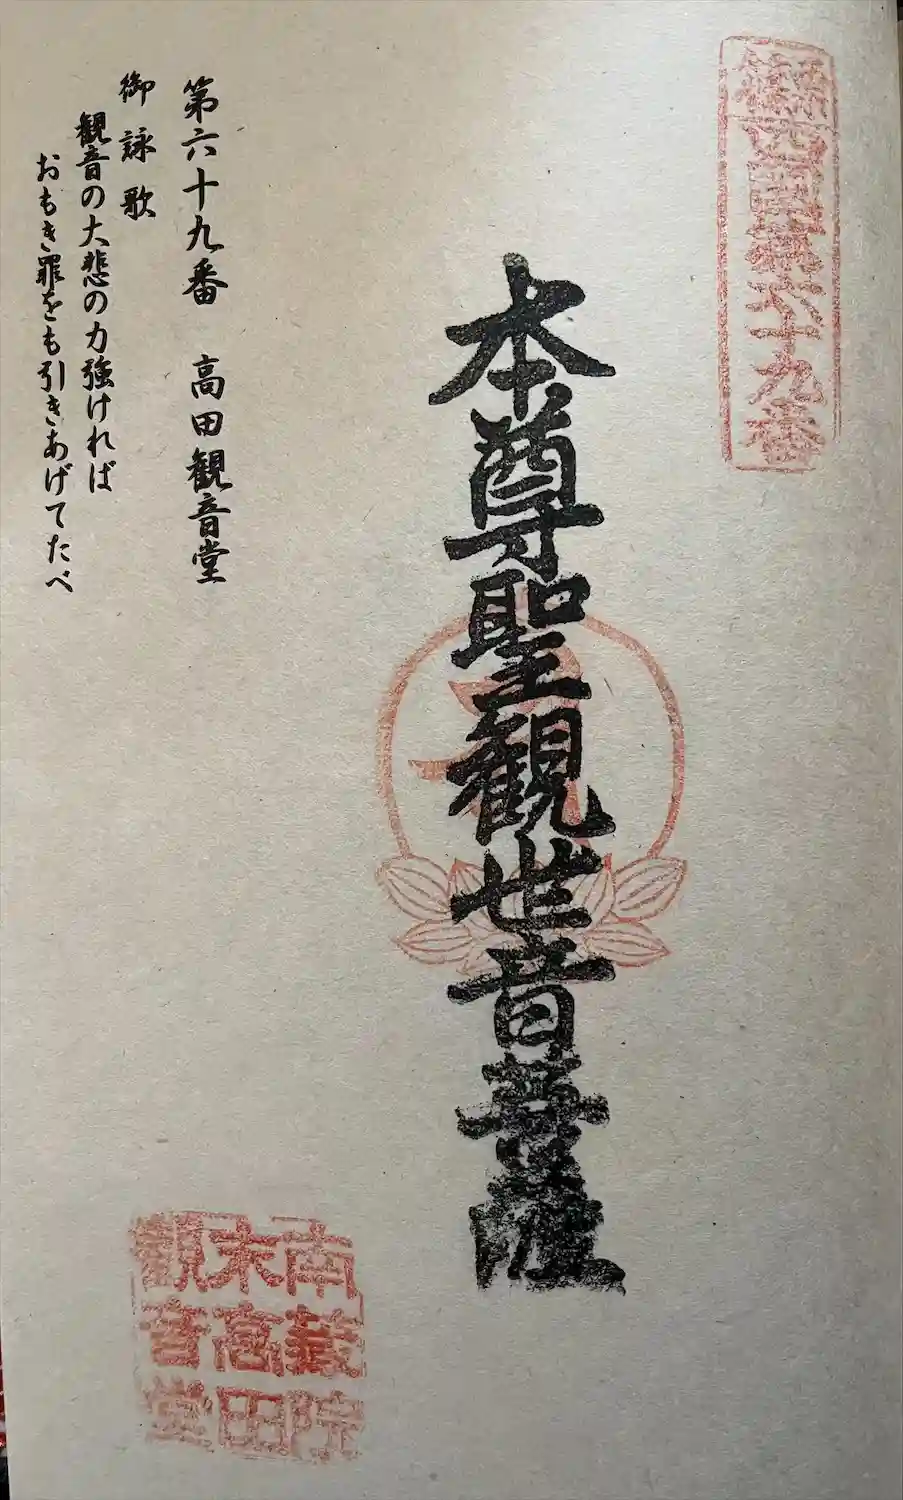 篠栗四国第六十九番
本尊聖観世音菩薩
第六十九番 高田観音堂
御詠歌
観音の大悲の力強ければ
おもき罪をも引きあげてたべ
南蔵院
末高田
観音堂